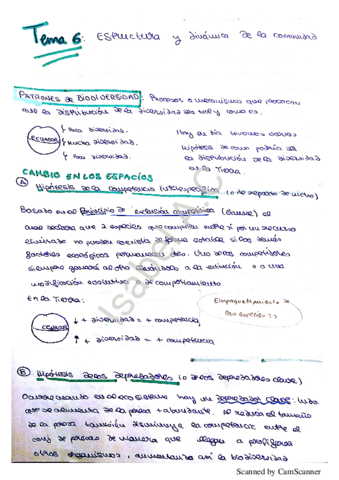 Tema 6: Estructura y dinámica de la comunidad
PATRONES DE BIODIVERSIDAD: Procesos o mecanismos que provocan
que la distribución de la diversidad sea tal y como es.
ECUADOR
Poca diversidad.
Mucha diversidad.
Poca diversidad.
Hoy en día tenemos varias
hipótesis de como podría ser
la distribución de la diversidad
en la Tierra.
CAMBIO EN LOS ESPACIOS
A Hipótesis de la competencia interespecífica (o de reparto de nicho)
Basado en el Principio de exclusión competitiva (Gause) el
cual declara que 2 especies que compitan entre sí por un recurso
eliminado no pueden coexistir de forma estable si los demás
factores ecológicos permanecen ctes. Uno de los competidores
siempre ganará al otro llevándolo a la extinción o a una
modificación evolutiva o de comportamiento
En la Tierra:
ECUADOR
↓ + diversidad = + competencia
↑ + diversidad = + competencia
Empaquetamiento de
las especies??
B Hipótesis de los depredadores (o de los depredadores clave)
en el ecosistema hay un depredador clave: indiv
que se alimenta de la presa + abundante. Al reducir el tamaño
de la presa también disminuye la competencia entre el
conj de presas de manera que llegan a proliferar
otros organismos, aumentando así la biodiversidad
Isabel A.C
Scanned by CamScanner